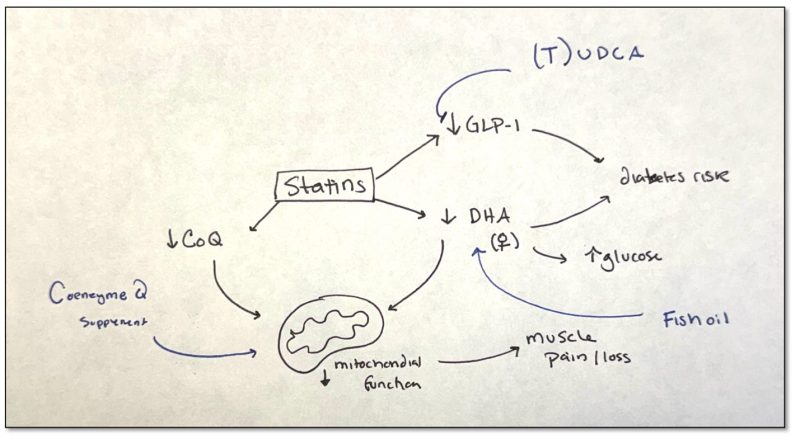 (T)UDCA
↓ GLP-1
diabetes risk
Statins
↓ DHA
(♀)
↓ CoQ
↑ glucose
Coenzyme Q
supplement
Fish oil
↓ mitochondrial
function
muscle
pain/loss